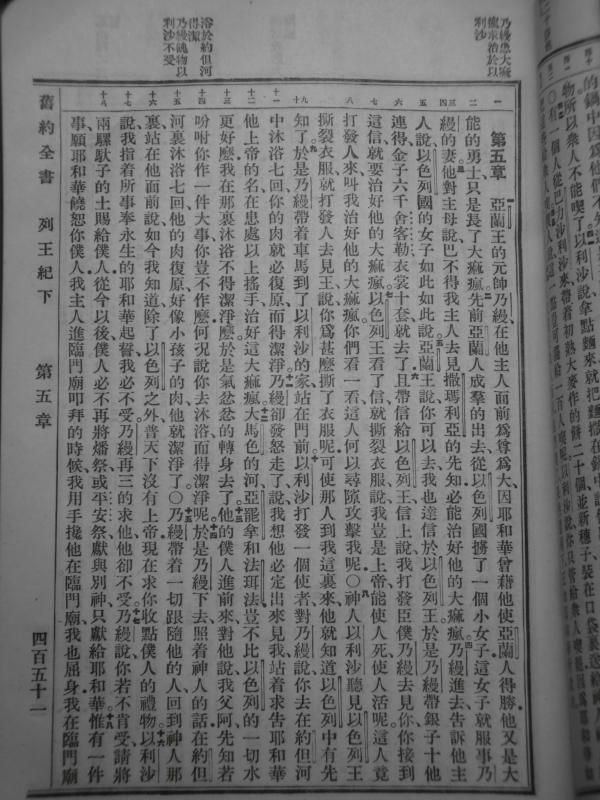 乃縵患大痲
瘋求治於以
利沙
浴於約但河
得潔
乃縵餽物以
利沙不受
第五章 亞蘭王的元帥乃縵在他主人面前爲尊爲大因耶和華曾藉他使亞蘭人得勝他又是大
能的勇士只是長了大痲瘋先前亞蘭人成羣的出去從以色列國擄了一個小女子這女子就服事乃
縵的妻他對主母說巴不得我主人去見撒瑪利亞的先知必能治好他的大痲瘋乃縵進去告訴他主
人說以色列國的女子如此如此說亞蘭王說你可以去我也達信於以色列王於是乃縵帶銀子十他
連得金子六千舍客勒衣裳十套就去了且帶信給以色列王信上說我打發臣僕乃縵去見你你接到
這信就要治好他的大痲瘋以色列王看了信就撕裂衣服說我豈是上帝能使人死使人活呢這人竟
打發人來叫我治好他的大痲瘋你們看一看這人何以尋隙攻擊我呢〇神人以利沙聽見以色列王
撕裂衣服就打發人去見王說你爲甚麽撕了衣服呢可使那人到我這裏來他就知道以色列中有先
知了於是乃縵帶着車馬到了以利沙的家站在門前以利沙打發一個使者對乃縵說你去在約但河
中沐浴七回你的肉就必復原而得潔淨乃縵卻發怒走了說我想他必定出來見我站着求告耶和華
他上帝的名在患處以上搖手治好這大痲瘋大馬色的河亞罷拿和法珥法豈不比以色列的一切水
更好麽我在那裏沐浴不得潔淨麽於是氣忿忿的轉身去了他的僕人進前來對他說我父阿先知若
吩咐你作一件大事你豈不作麽何况說你去沐浴而得潔淨呢於是乃縵下去照着神人的話在約但
河裏沐浴七回他的肉復原好像小孩子的肉他就潔淨了〇乃縵帶着一切跟隨他的人回到神人那
裏站在他面前說如今我知道除了以色列之外普天下沒有上帝現在求你收點僕人的禮物以利沙
說我指着所事奉永生的耶和華起誓我必不受乃縵再三的求他他卻不受乃縵說你若不肯受請將
兩騾馱子的土賜給僕人從今以後僕人必不再將燔祭或平安祭獻與別神只獻給耶和華惟有一件
事願耶和華饒恕你僕人我主人進臨門廟叩拜的時候我用手攙他在臨門廟我也屈身我在臨門廟
舊約全書 列王紀下 第五章 四百五十一